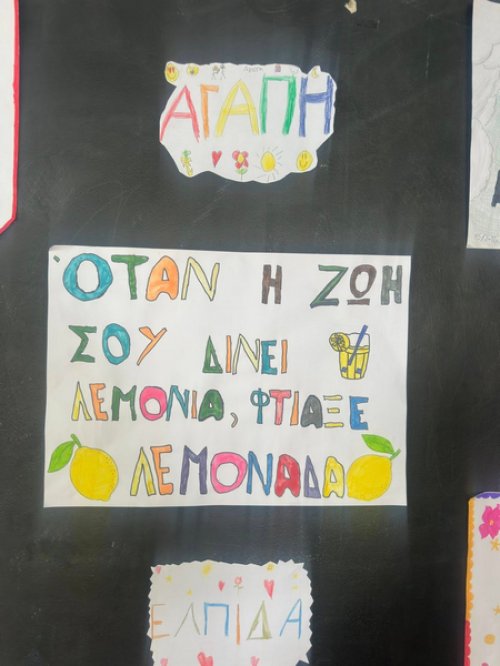 ΑΓΑΠΗ
ΌΤΑΝ Η ΖΩΗ
ΣΟΥ ΔΙΝΕΙ
ΛΕΜΟΝΙΑ, ΦΤΙΑΞΕ
ΛΕΜΟΝΑΔΑ
ΕΛΠΙΔΑ